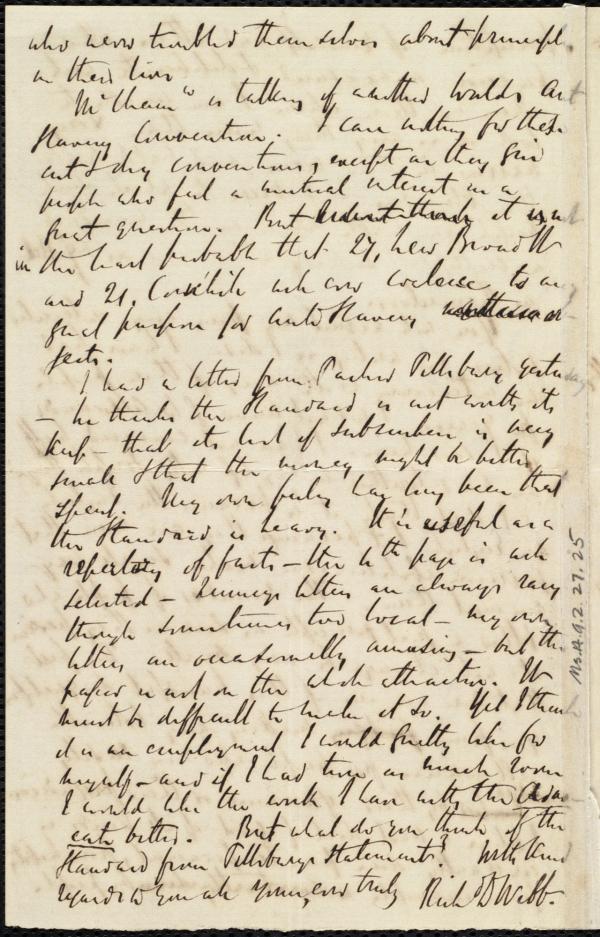 who never troubled themselves about principle
in their lives
Mr Chesson is talking of another Worlds Anti
Slavery Convention. I care nothing for these
cut & dry conventions, except as they give
people who feel a mutual interest in a
great question. But it is not
in the least probable that 27, New Broad St
and 21, Cornhill will ever coalesce to an
equal purpose for Anti Slavery
I had a letter from Parker Pillsbury yesterday
— he thinks the Standard is not worth its
keep — that its list of subscribers is very
small & that the money might be better
spent. My own feeling has long been that
the Standard is heavy. It is useful as a
repertory of facts — the 4th page is well
selected — letters are always racy
though sometimes too local — my own
letters are occasionally amusing — but the
paper is not on the whole attractive. It
must be difficult to make it so. Yet I think
it is an employment I would greatly like for
myself — and if I had twice as much room
I would like the work I have with the Advo-
cate better. But what do you think of the
Standard from Pillsburys statements? With kind
regards to you all yours, ever truly Rich D Webb.
Ms.A.9.2.27.25